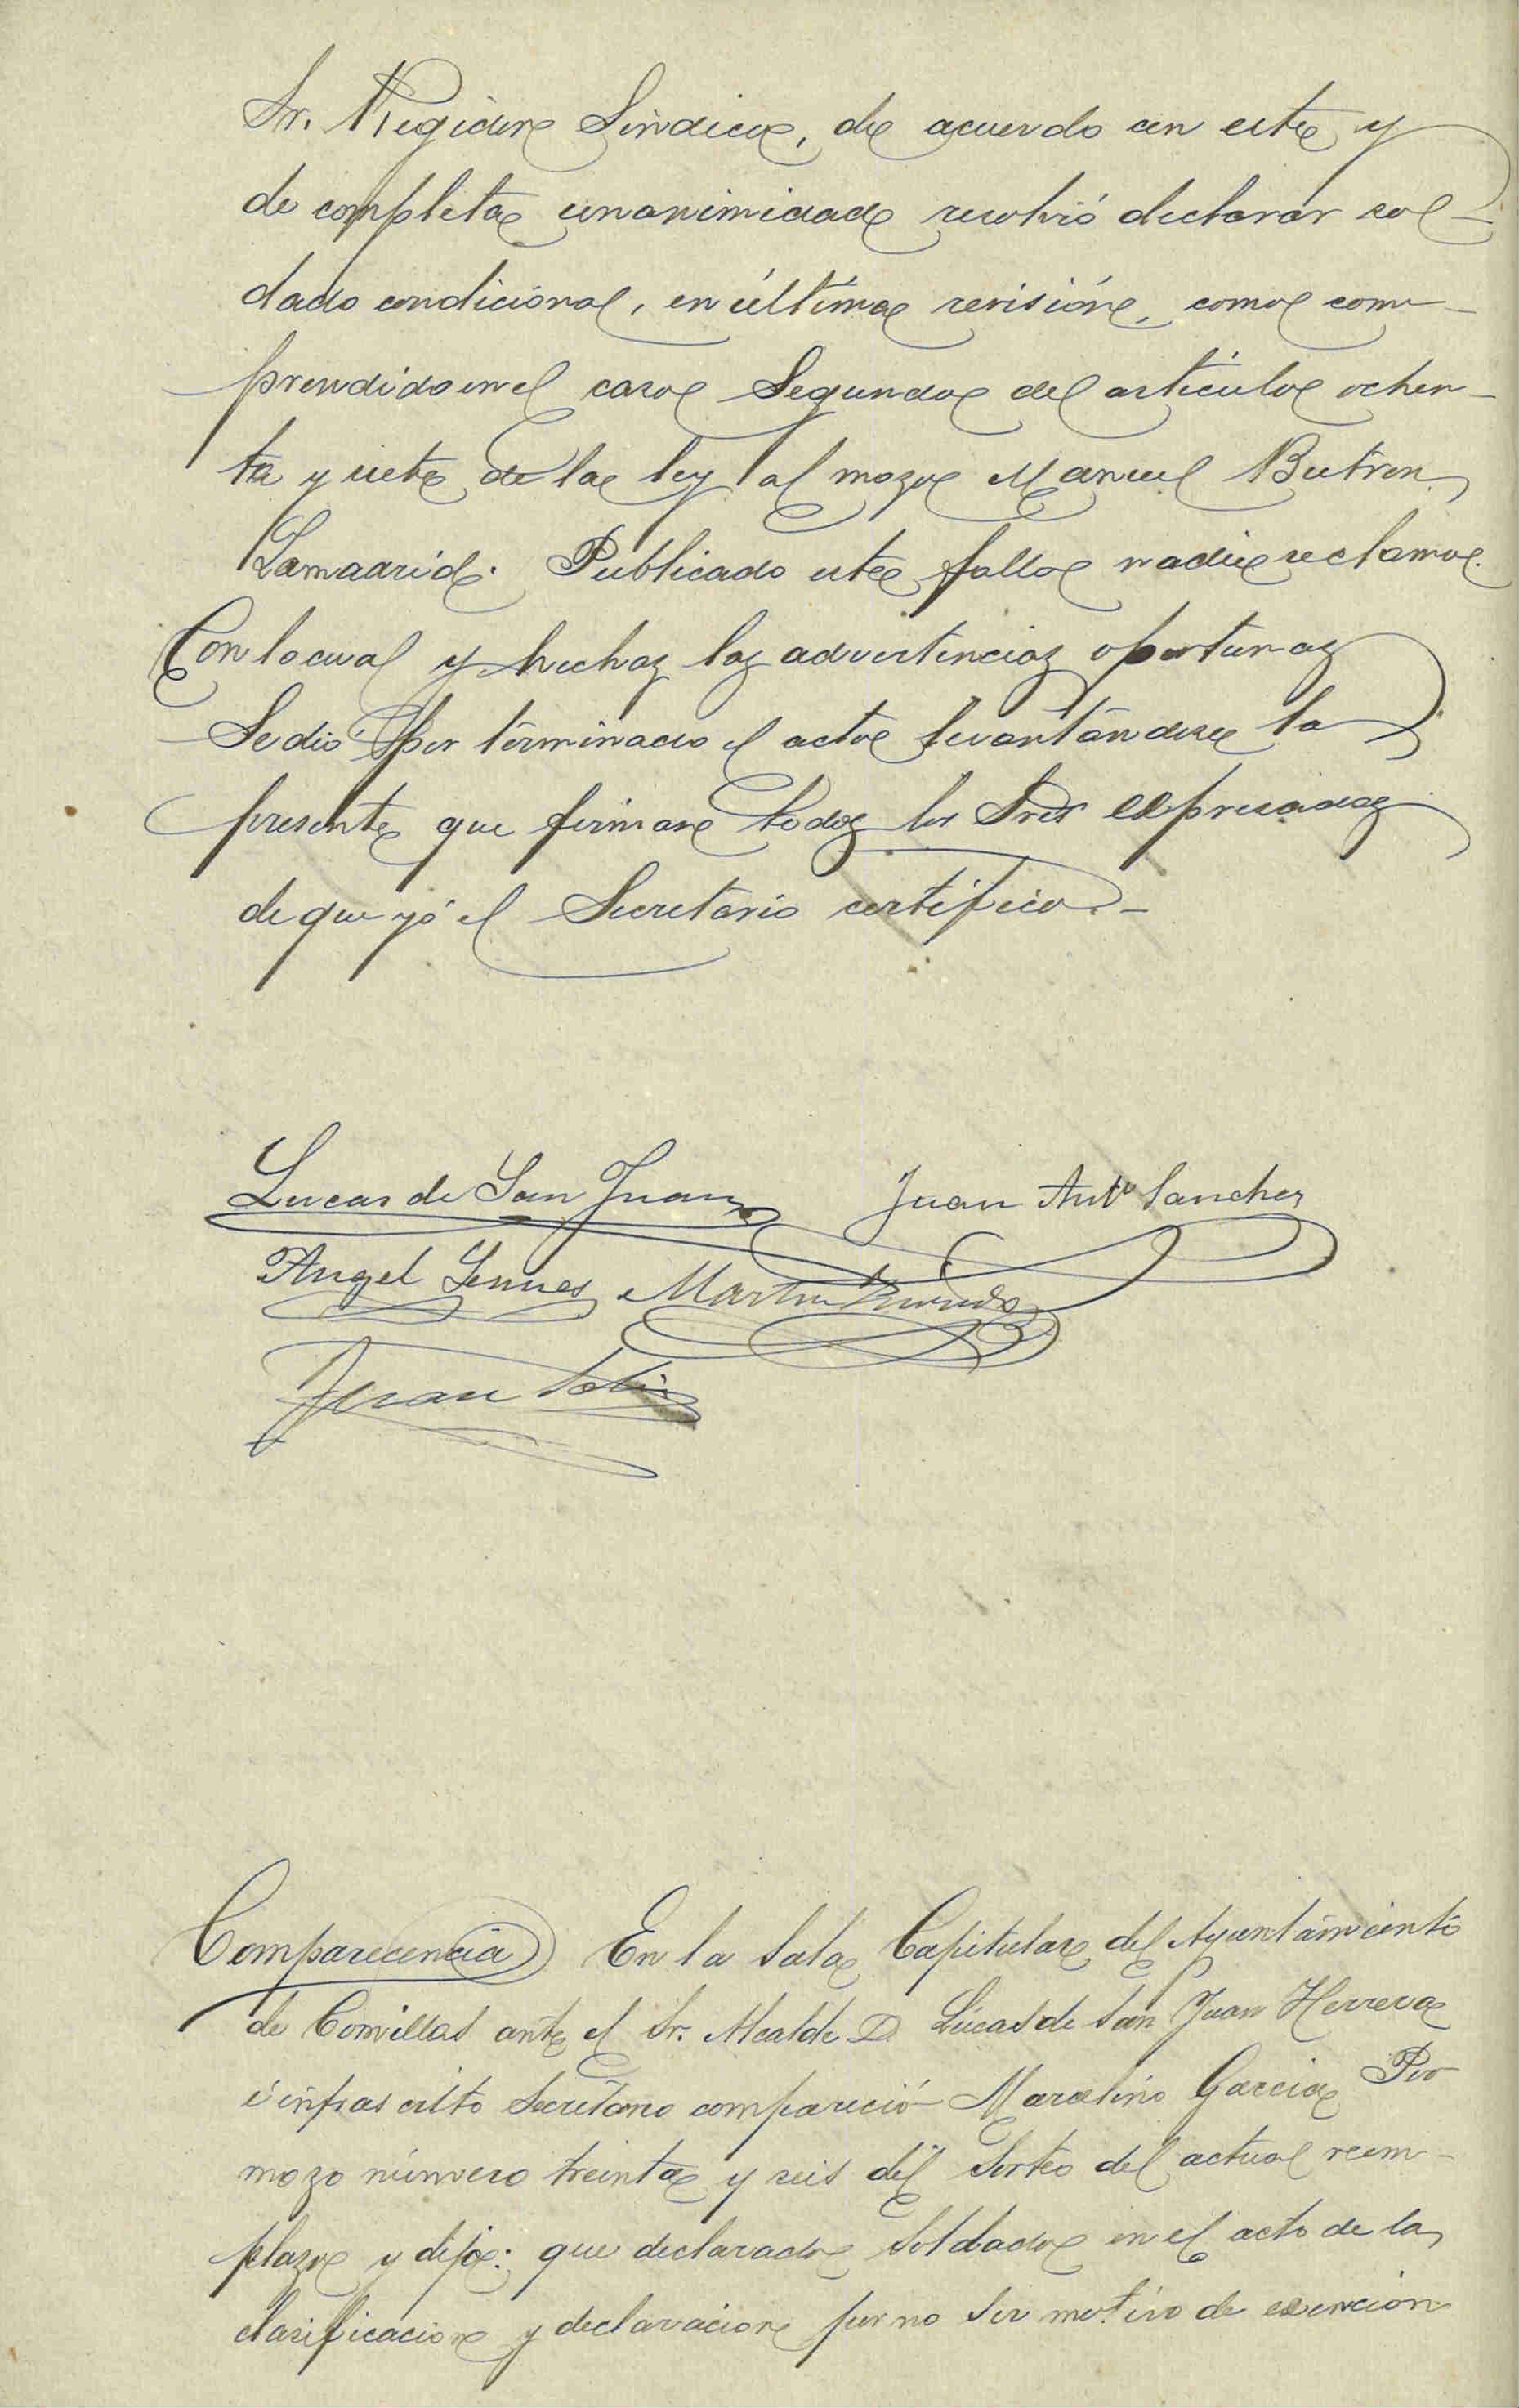 Sr. Regidor Síndico, de acuerdo con este y
de completa unanimidad resolvió declarar sol-
dado condicional, en última revisión, como com-
prendido en el caso Segundo del artículo ochen-
ta y siete de la ley al mozo Manuel Butron
Lamadrid. Publicado este fallo nadie reclamo.
Con lo cual y hechas las advertencias oportunas
Se dió por terminado el acto levantándose la
presente que firman todos los Sres expresados
de que yó el Secretario certifico.-
Lucas de San Juan Juan Antº Sanchez
Angel Martin
Juan
Comparecencia En la Sala Capitular del Ayuntamiento
de Comillas ante el Sr. Alcalde D. Lúcas de San Juan Herrera
é infrascrito Secretario compareció Marcelino Garcia
mozo número treinta y seis del Sorteo del actual reem-
plazo y dijo: que declarado Soldado en el acto de la
clasificacion y declaracion por no ser motivo de esencion